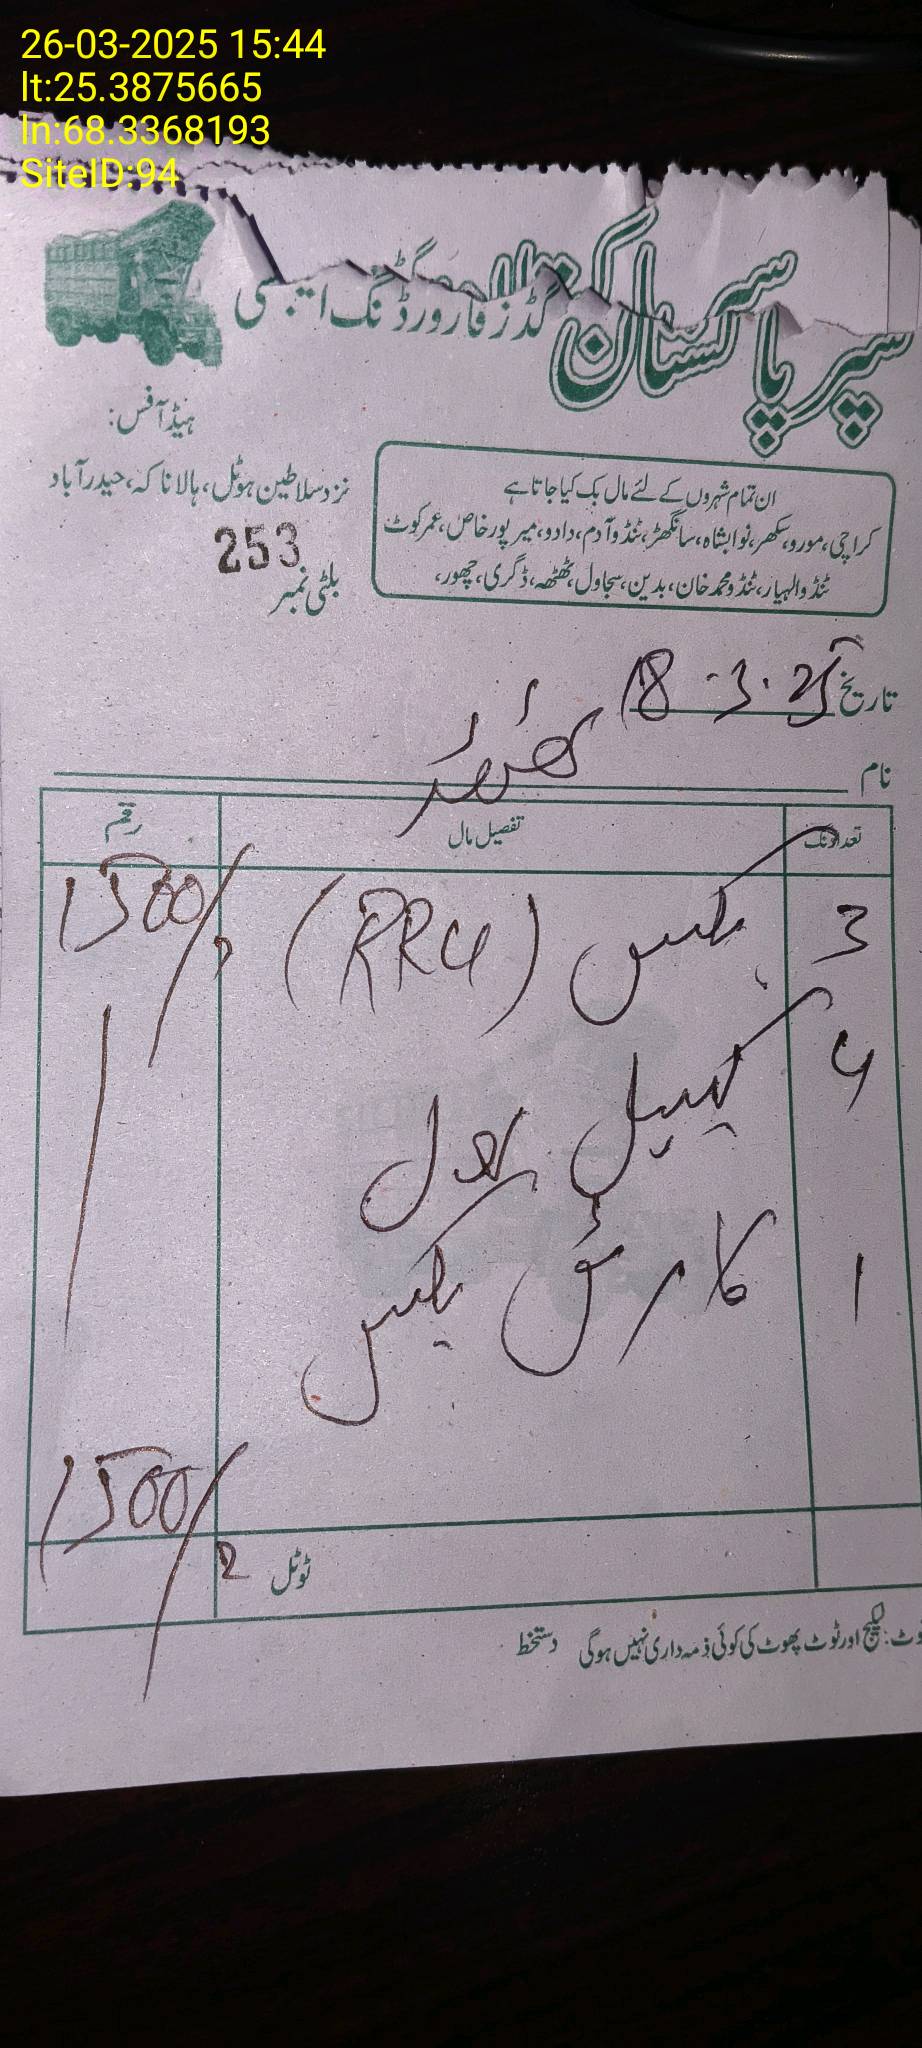 26-03-2025 15:44
lt:25.3875665
ln:68.3368193
SiteID:94
سپر پاکستان
گڈز فارورڈنگ ایجنسی
ہیڈ آفس:
نزد سلاطین ہوٹل، ہالا ناکہ، حیدرآباد
ان تمام شہروں کے لئے مال بک کیا جاتا ہے
کراچی، مورو، سکھر، نوابشاہ، سانگھڑ، ٹنڈوآدم، دادو، میرپورخاص، عمرکوٹ
ٹنڈوالہیار، ٹنڈومحمد خان، بدین، سجاول، ٹھٹھہ، ڈگری، چھور،
253
بلٹی نمبر
تاریخ 18.3.25
نام
تعداد نگ تفصیل مال رقم
3 بکس (RRU) 1500/
4 کیبل رول
1 کارٹن بکس
ٹوٹل 1500/
نوٹ: لیکج اور ٹوٹ پھوٹ کی کوئی ذمہ داری نہیں ہوگی دستخط